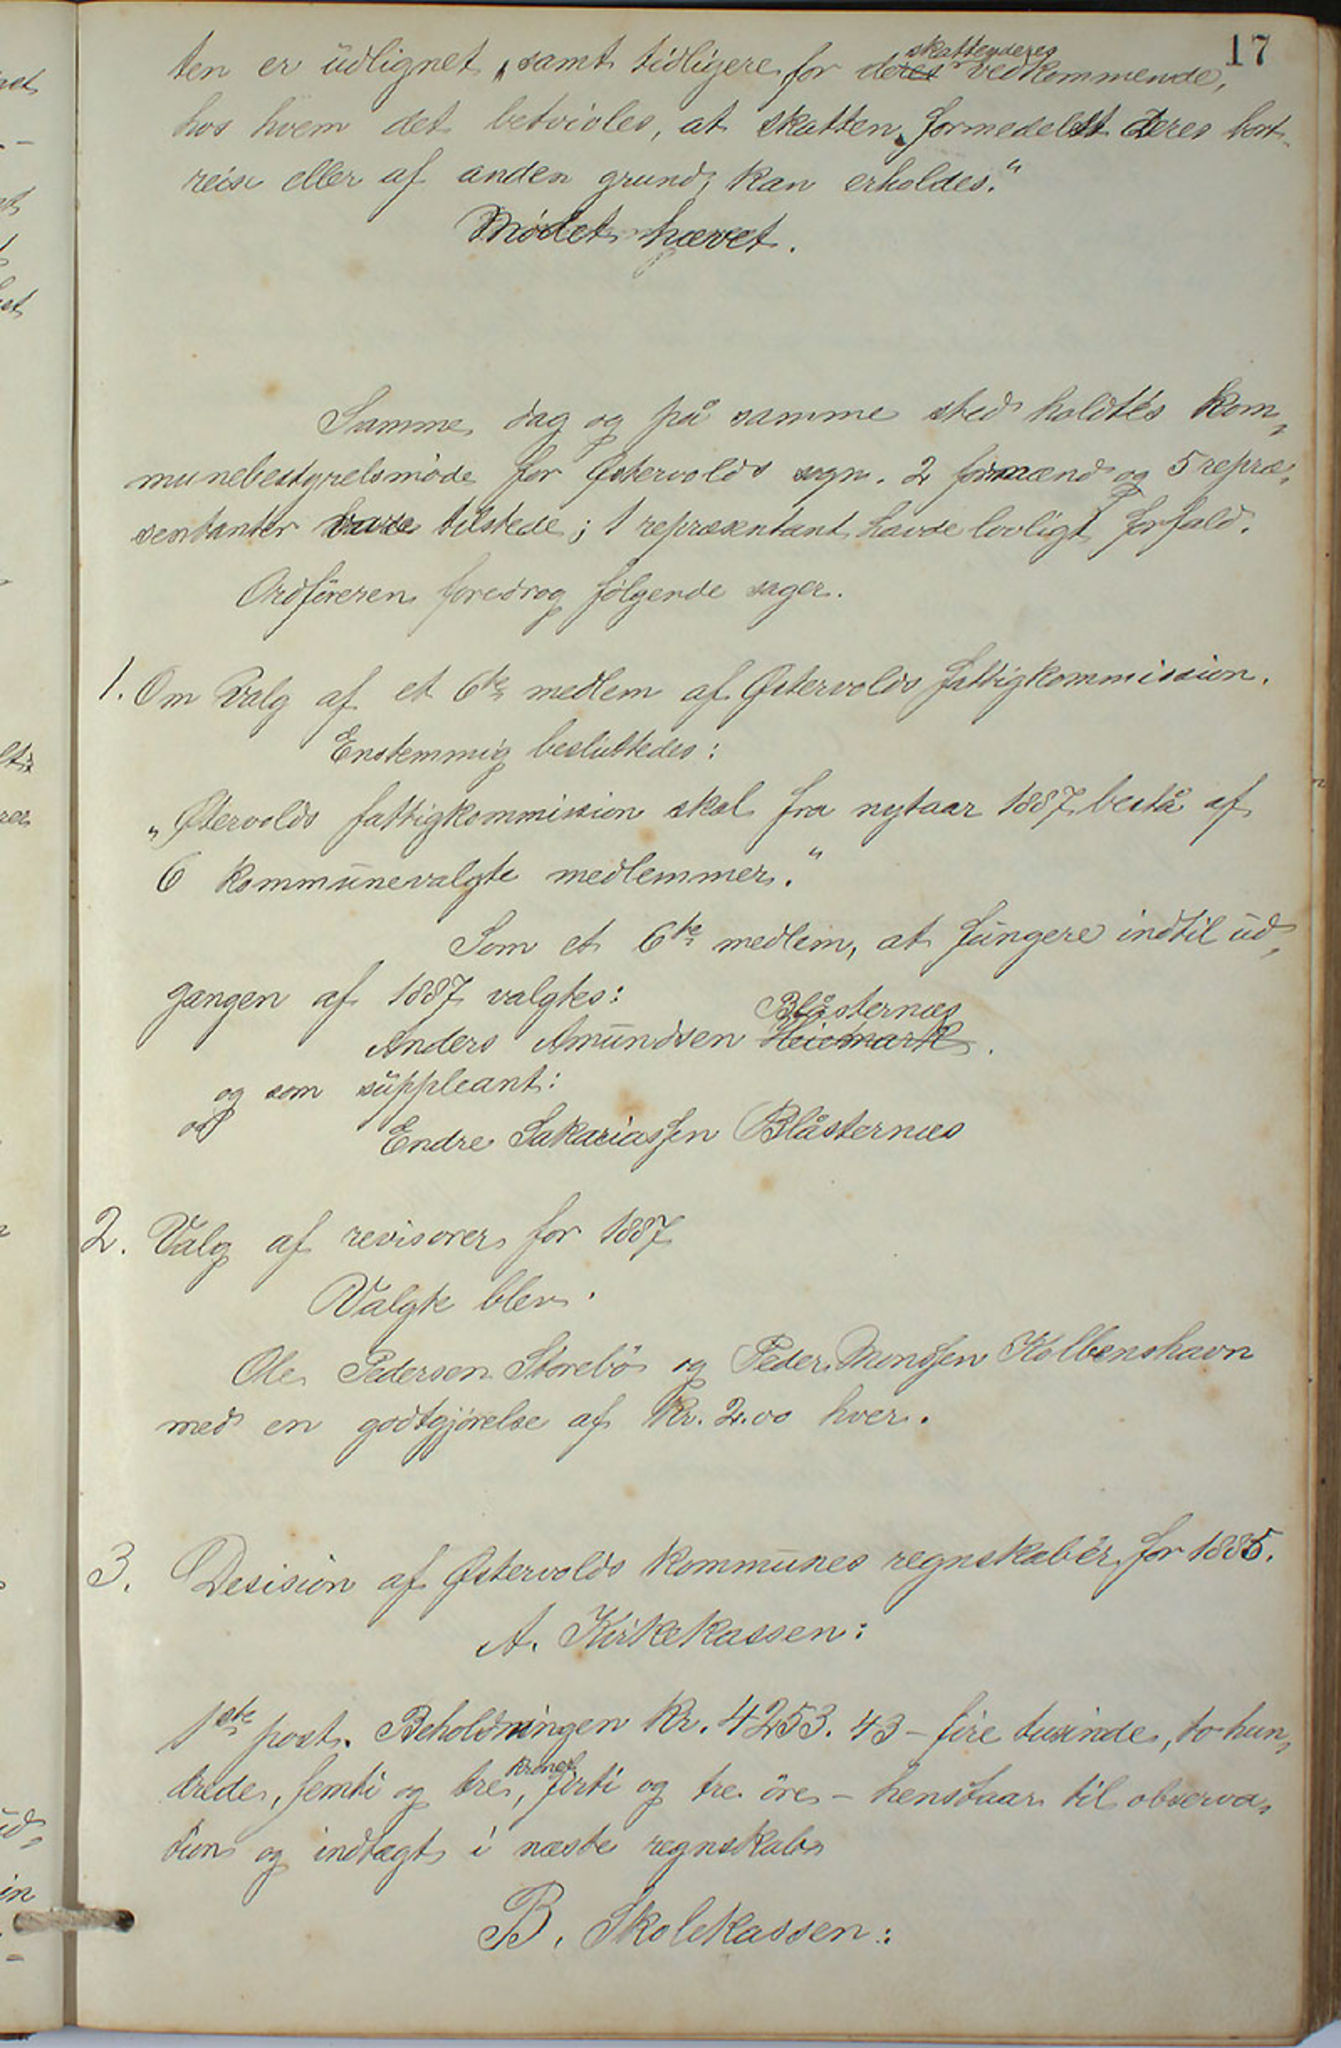 17
ten er udlignet, samt tidligere for deres skattyderes vedkommende,
hos hvem det betvivles, at skatten, formedelst deres bort-
reise eller af anden grund, kan erholdes."
Mødet hævet.
Samme dag og på samme sted holdtes kom-
munebestyrelsmøde for Østervolds sogn. 2 formænd og 5 repræ-
sentanter vare tilstede; 1 repræsentant havde lovligt forfald.
Ordføreren foredrog følgende sager.
1. Om Valg af et 6te medlem af Østervolds fattigkommission.
Enstemmig besluttedes:
"Østervolds fattigkommission skal fra nytaar 1887 bestå af
6 kommunevalgte medlemmer."
Som et 6te medlem, at fungere indtil ud-
gangen af 1887 valgtes:
Blåsternæs
Anders Amundsen Heiemark.
og som suppleant:
Endre Sakariassen Blåsternæs
2. Valg af revisorer for 1887
Valgte blev.
Ole Pedersen Storebö og Peder Monssen Kolbenshavn
med en godtgjørelse af Kr. 2.00 hver.
3. Desision af Østervolds kommunes regnskaber for 1885.
A. Kirkekassen:
1ste post. Beholdningen Kr. 4253.43 – fire tusinde, to hun-
drede, femti og tre kroner, firti og tre öre – henstaar til observa-
tion og indtægt i næste regnskab
B. Skolekassen: